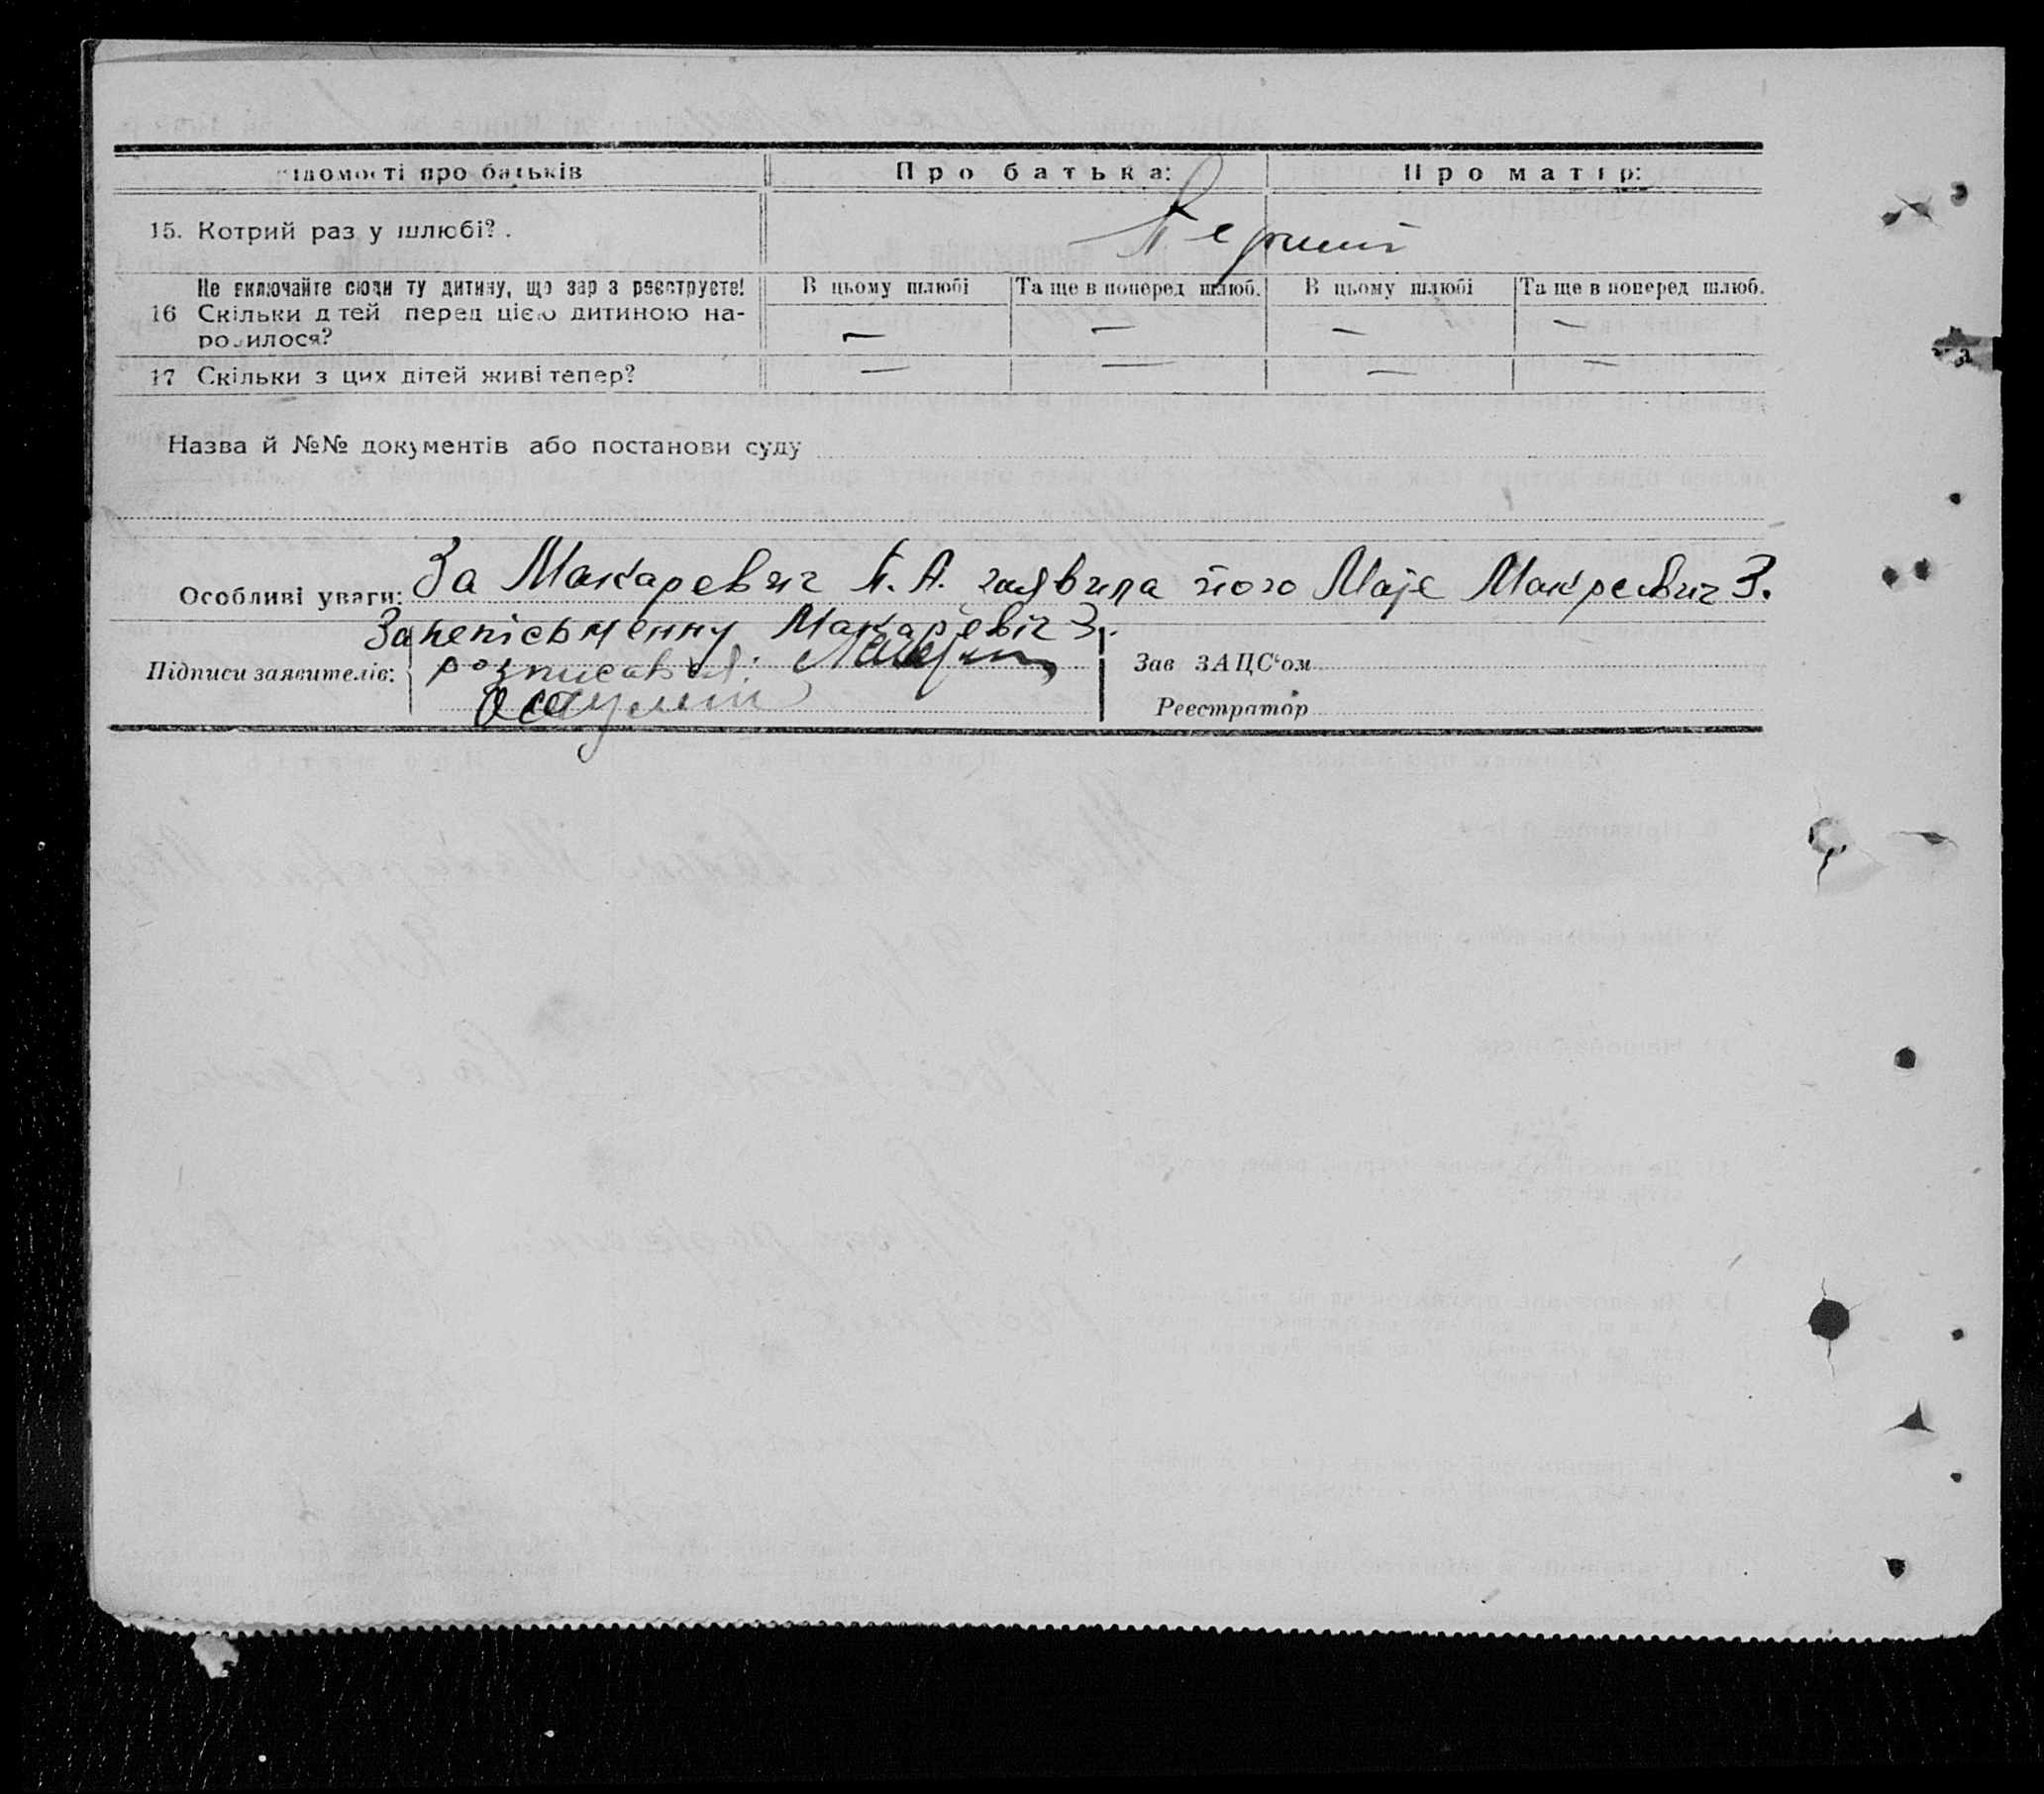 ідомості про батьків Про батька: Про матір:
15. Котрий раз у шлюбі? . Перший
Не включайте сюди ту дитину, що зар з реєструєте! В цьому шлюбі Та ще в поперед шлюб. В цьому шлюбі Та ще в поперед шлюб.
16 Скільки д тей перед цією дитиною на-
родилося? — — — —
17 Скільки з цих дітей живі тепер? — — — —
Назва й №№ документів або постанови суду
Особливі уваги: За Макаревич П. А. заявила його Макревич З.
За непісьменну Макаревіч З.
Підписи заявителів: розписався. Зав ЗАЦС'ом
Реєстратор